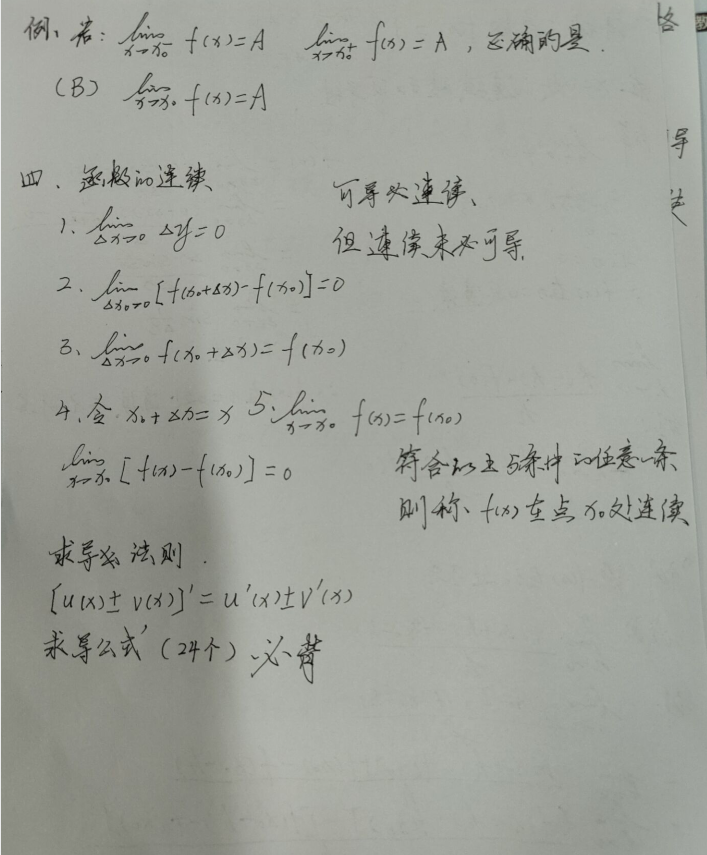 例、若: lim x→x₀⁻ f(x)=A lim x→x₀⁺ f(x)=A, 正确的是.
(B) lim x→x₀ f(x)=A
四、函数的连续
可导必连续、
但连续未必可导,
1. lim Δx→0 Δy=0
2. lim Δx→0 [f(x₀+Δx)-f(x₀)]=0
3. lim Δx→0 f(x₀+Δx)=f(x₀)
4. 令 x₀+Δx=x 5. lim x→x₀ f(x)=f(x₀)
lim x→x₀ [f(x)-f(x₀)]=0
符合以上5条中的任意一条
则称、f(x)在点x₀处连续
求导 法则.
[u(x)±v(x)]'=u'(x)±v'(x)
求导公式(24个)必背
络
导